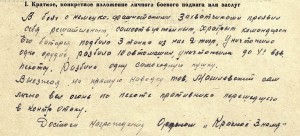 I. Краткое, конкретное изложение личного боевого подвига или заслуг
В боях с немецко-фашистскими захватчиками проявил
себя решительным, самоотверженным, храбрым командиром
его батареи, подбито 3 танка из них 2 танк. уничтожено
одно орудие, разбито 10 автомашин уничтожено до 4х взв.
пехоты. Разбито одну самоходную пушку.
на прямую наводку тов. сам
лично вел огонь по пехоте противника перешедшего
в контр атаку.
Достоин награждения Орденом "Красное Знамя"